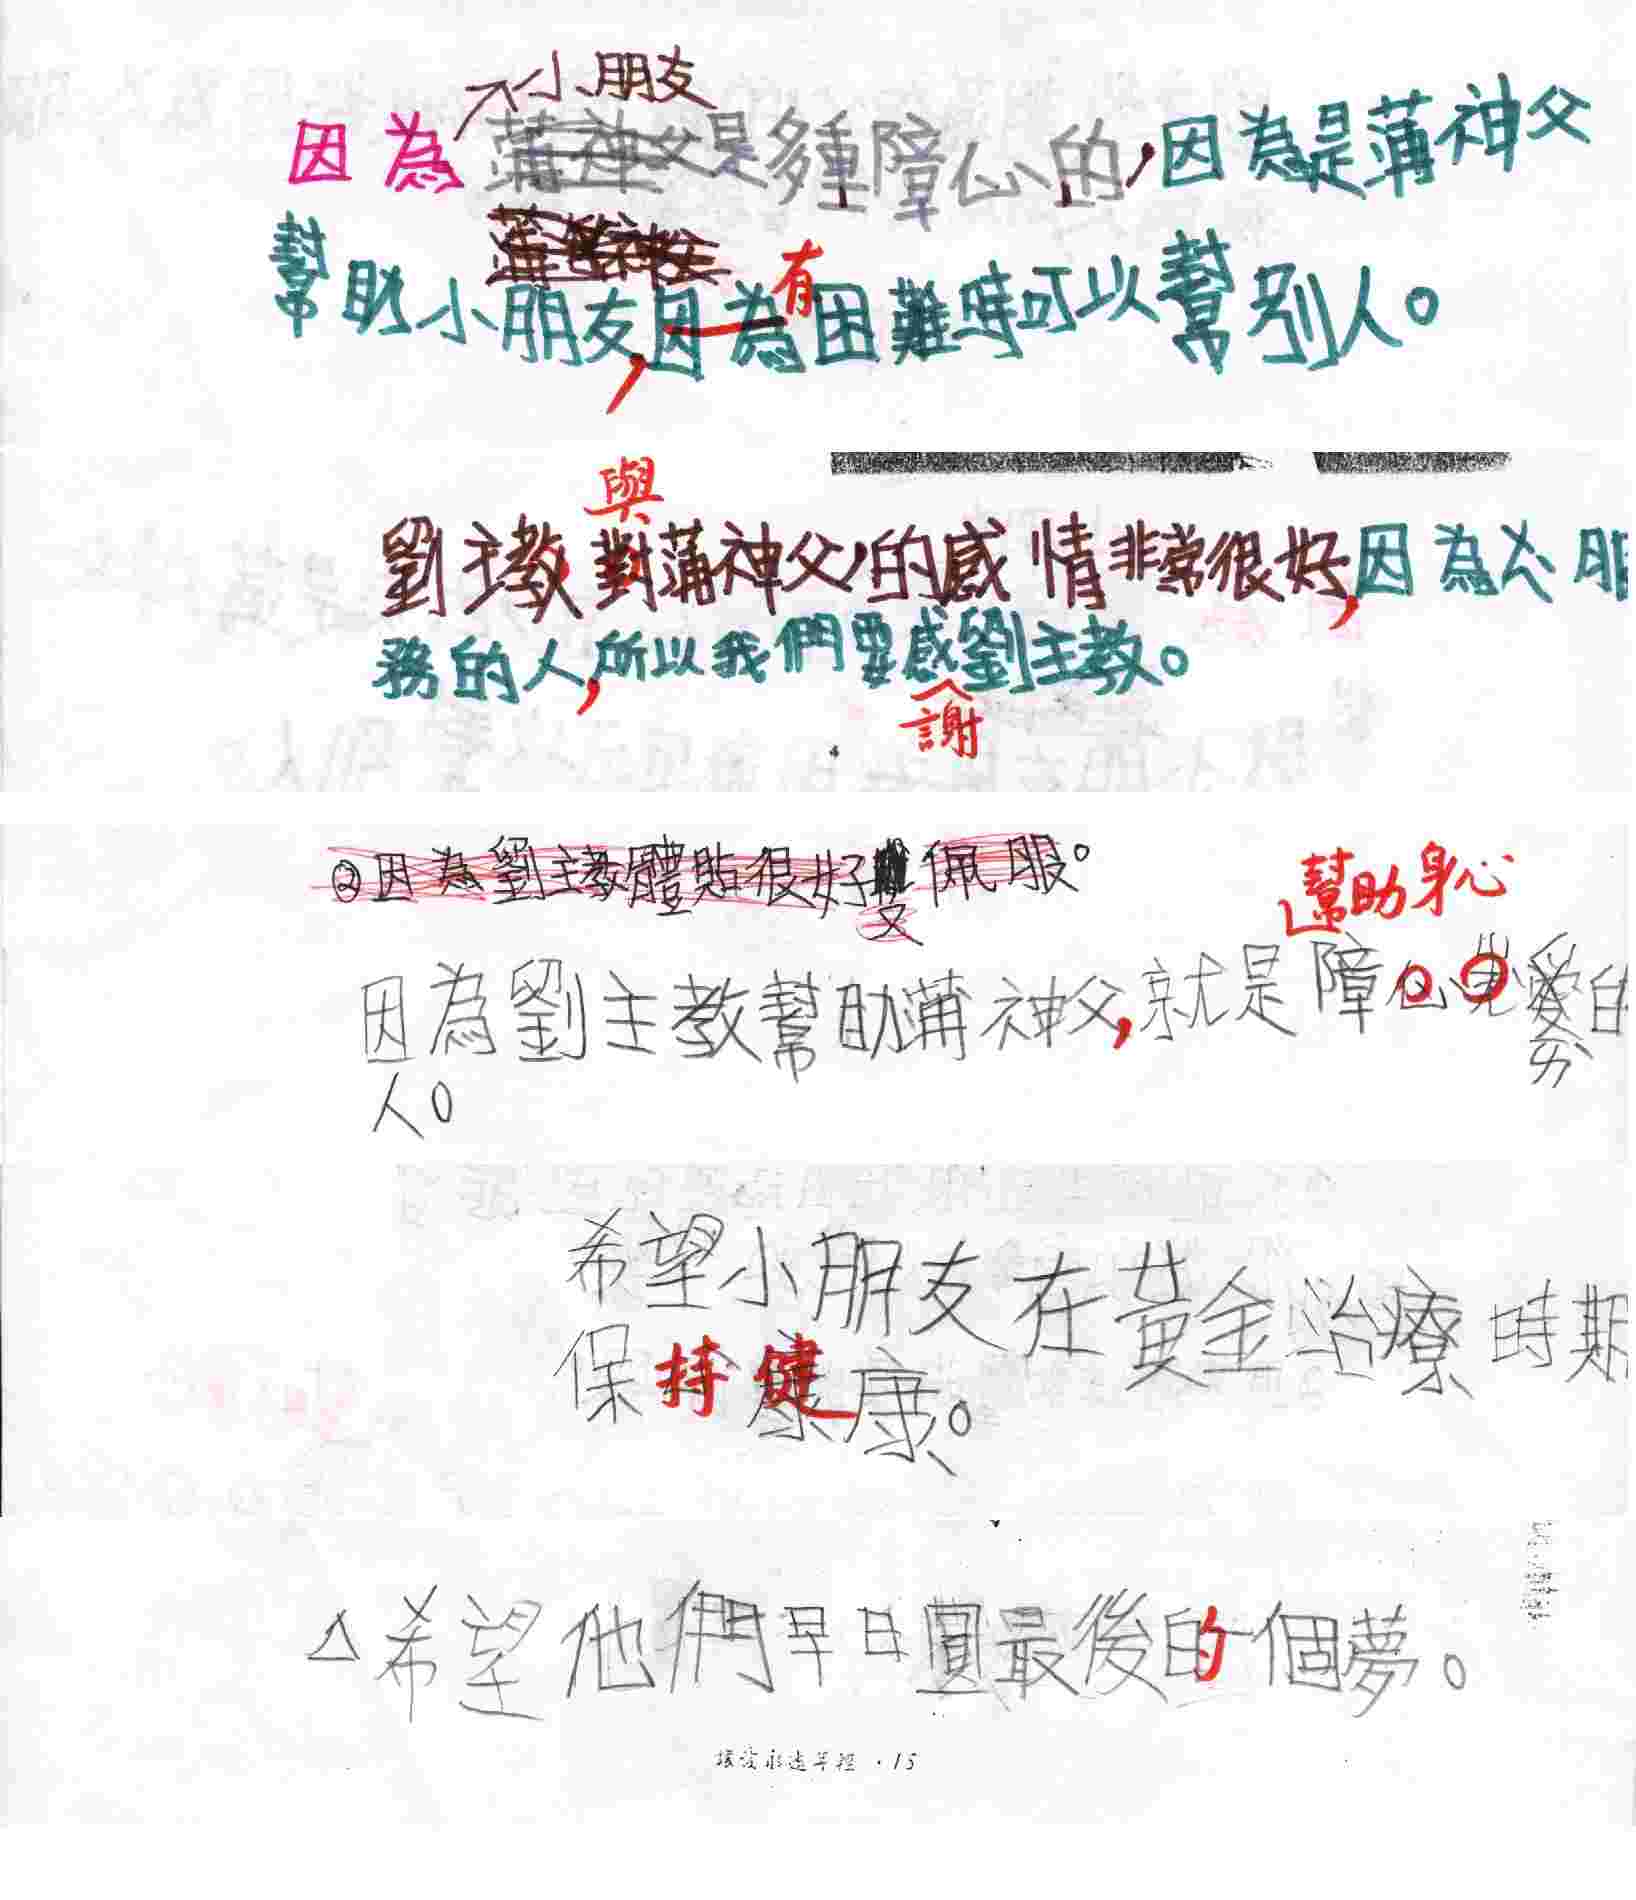 小朋友
因為蒲神父是多重障心的,因為是蒲神父
蒲神父
有
幫助小朋友,因為困難時可以幫別人。
與
劉主教對蒲神父的感情非常很好,因為公服
務的人,所以我們要感劉主教。
謝
②因為劉主教體貼很好佩服。
幫助身心
因為劉主教幫助蒲神父,就是障心愛的
人。
希望小朋友在黃金治療時期
保持健康。
△希望他們早日圓最後的一個夢。
讓愛永遠年輕 · 15